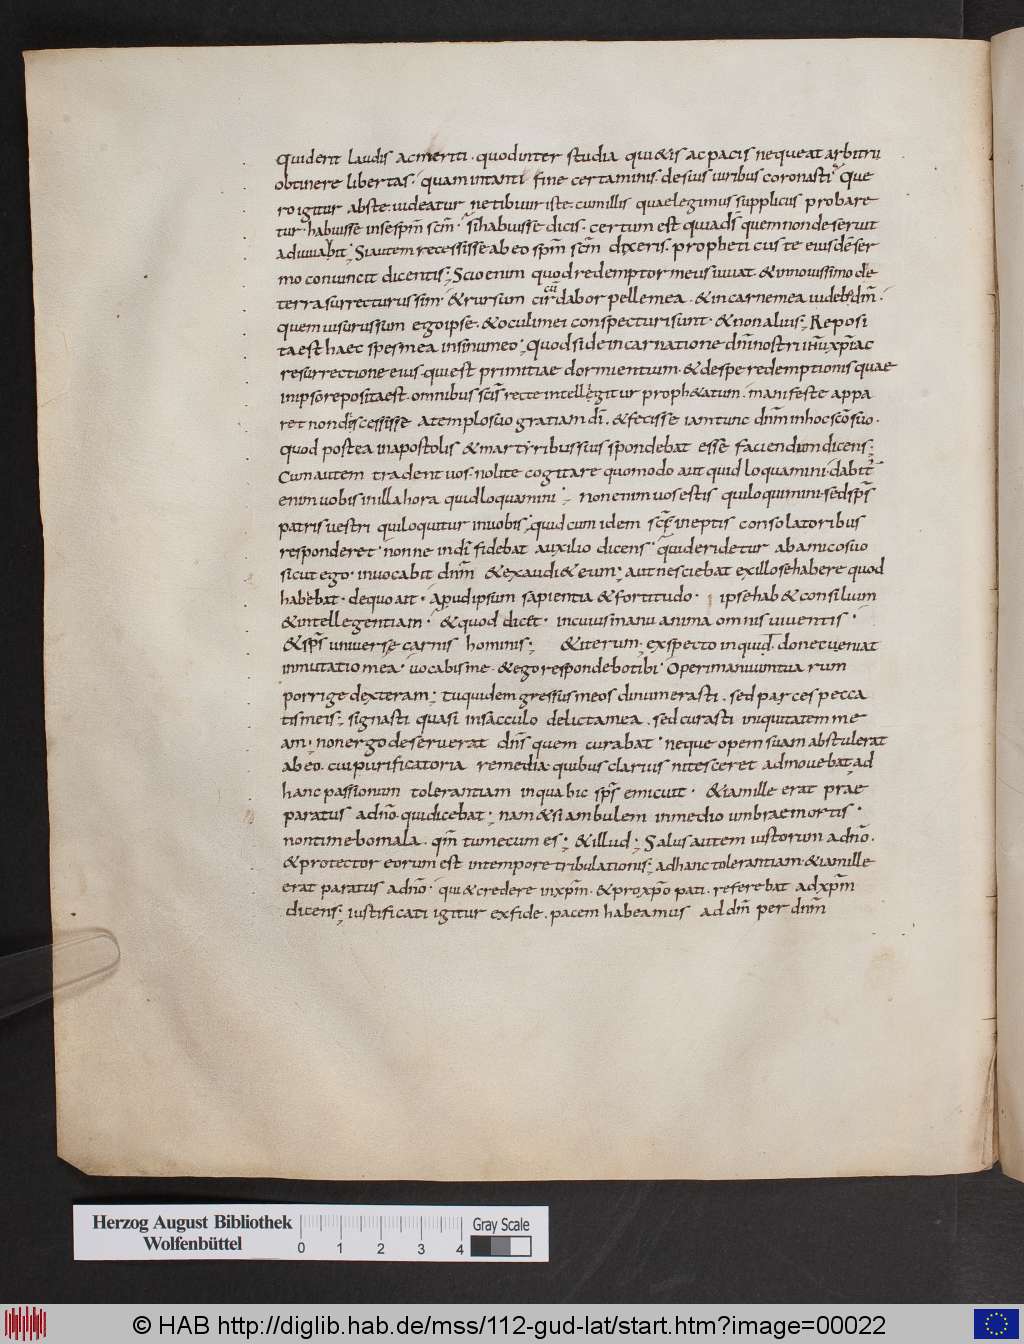 Quid erit laudis ac meriti · quod inter studia qui&is ac pacis nequeat arbitrii
obtinere libertas · quam in tanti fine certaminis · de suis uiribus coronasti? Que
ro igitur abs te · uideatur ne tibi uir iste · cum illis quae legimus suppliciis probare
tur · habuisse in se sp̄m sc̄m? si habuisse dicis · certum est quia d̄s quem non deseruit
adiuuabit; Si autem recessisse ab eo sp̄m sc̄m dixeris · propheticus te eius de ser
mo conuincit dicentis; Scio enim quod redemptor meus uiuat · & in nouissimo de
terra surrecturus sim · & rursum circūdabor pelle mea · & in carne mea uidebo dm̄ ·
quem uisurus sum ego ipse · & oculi mei conspecturi sunt · & non alius; Reposi
ta est haec spes mea in sinu meo; Quod si de incarnatione dn̄i nostri ih̄u xp̄i ac
resurrectione eius · qui est primitiae dormientium · & de spe redemptionis quae
in ipso reposita est · omnibus sc̄is recte intellegitur proph&atum · manifeste appa
ret non discessisse a templo suo gratiam dī · & fecisse iam tunc dn̄m in hoc sc̄o suo ·
quod postea in apostolis & martyribus suis spondebat esse faciendum dicens;
Cum autem tradent uos · nolite cogitare quomodo aut quid loquamini · dabit̄
enim uobis in illa hora quid loquamini; non enim uos estis qui loquimini · sed sp̄s
patris uestri qui loquitur in uobis; quid cum idem ineptis consolatoribus
responderet · nonne in dī fidebat auxilio dicens · qui deridetur ab amico suo
sicut ego · inuocabit dn̄m & exaudi& eum; aut nesciebat ex illo se habere quod
habebat · de quo ait · Apud ipsum sapientia & fortitudo · ipse hab& consilium
& intellegentiam · & quod dicet · in cuius manu anima omnis uiuentis ·
& sp̄s uniuerse carnis hominis; & iterum · exspecto inquid · donec ueniat
inmutatio mea · uocabis me · & ego respondebo tibi · Operi manuum tuarum
porrige dexteram; tu quidem gressus meos dinumerasti · sed parces pecca
tis meis; signasti quasi in sacculo delicta mea · sed curasti iniquitatem me
am; non ergo deseruerat dn̄s quem curabat · neque opem suam abstulerat
ab eo · cui purificatoria remedia quibus clarius nitesceret admouebat; ad
hanc passionum tolerantiam in qua hic sp̄s emicuit · & iam ille erat prae
paratus a dn̄o · qui dicebat; nam & si ambulem in medio umbrae mortis ·
non timebo mala · qm̄ tu mecum es; & illud; Salus autem iustorum a dn̄o ·
& protector eorum est in tempore tribulationis; ad hanc tolerantiam & iam ille
erat paratus a dn̄o · qui & credere in xp̄m · & pro xp̄o pati · referebat ad xp̄m
dicens; iustificati igitur ex fide · pacem habeamus ad dm̄ per dn̄m
Herzog August Bibliothek
Wolfenbüttel
0 1 2 3 4
Gray Scale
© HAB http://diglib.hab.de/mss/112-gud-lat/start.htm?image=00022